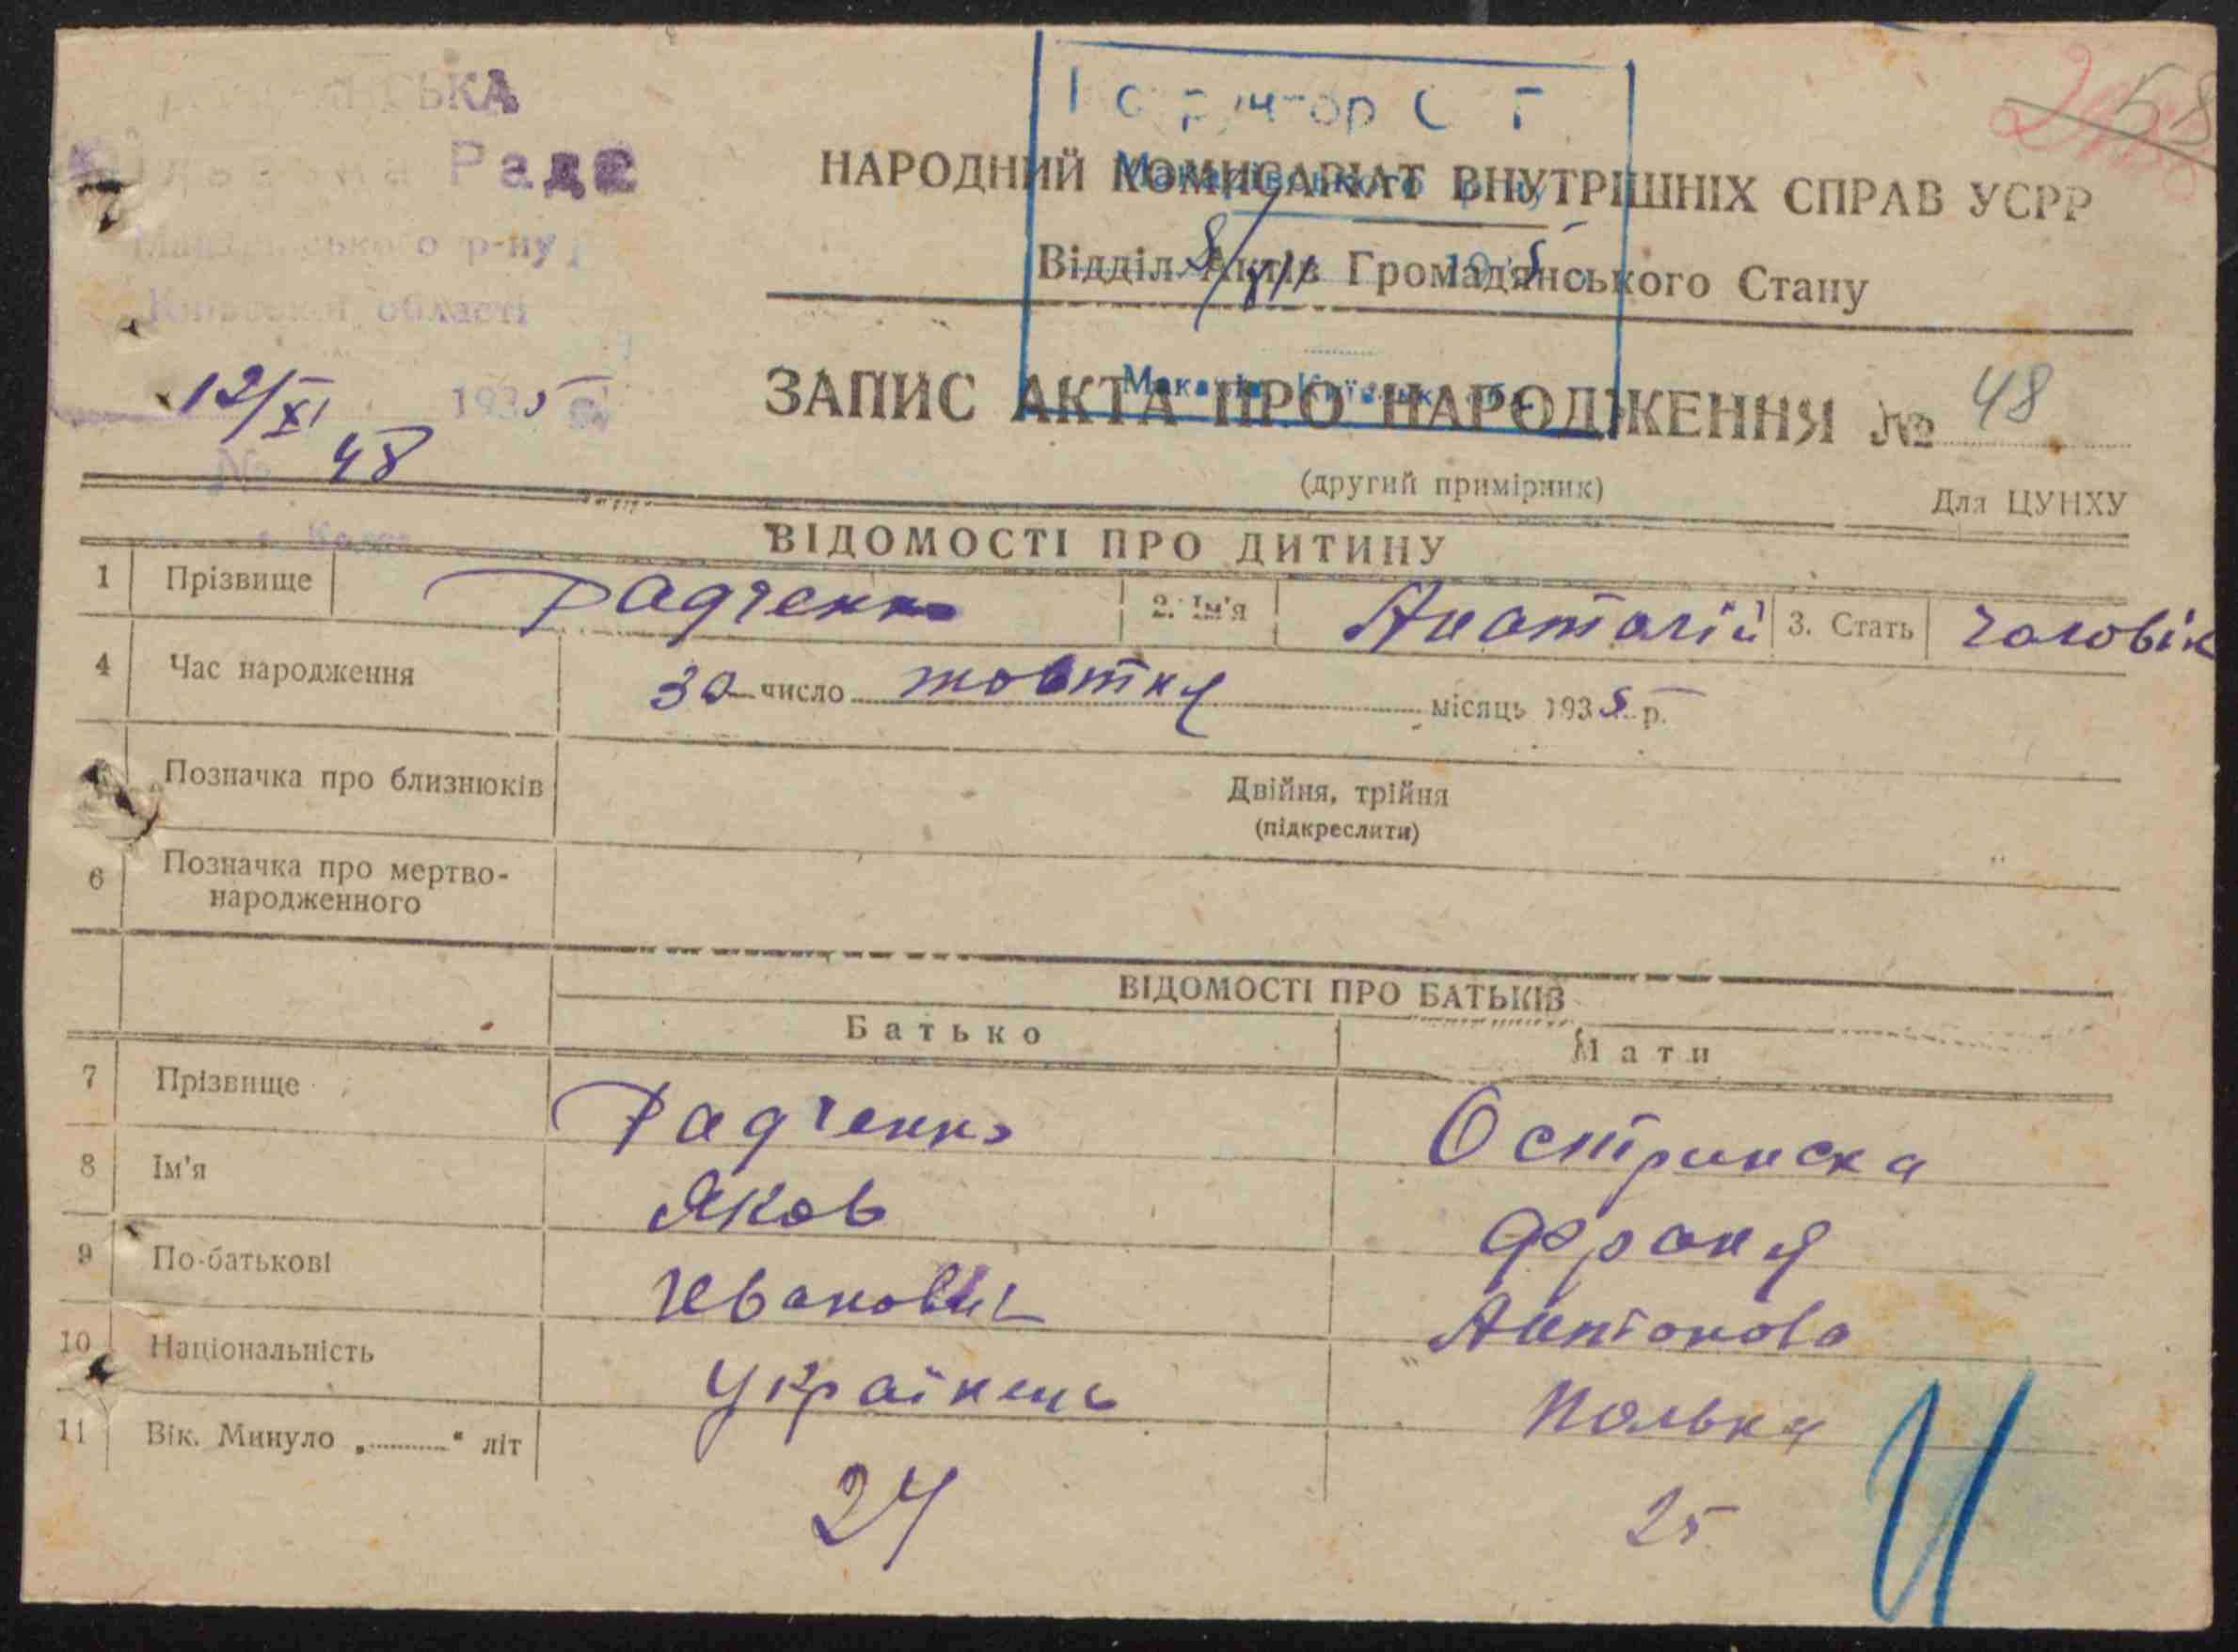 Рада
р-ну
області
12/XI 1935
№ 48
58
НАРОДНИЙ КОМИСАРІАТ ВНУТРІШНІХ СПРАВ УСРР
Відділ Актів Громадянського Стану
ЗАПИС АКТА ПРО НАРОДЖЕННЯ № 48
(другий примірник)
Для ЦУНХУ
ВІДОМОСТІ ПРО ДИТИНУ
1 Прізвище Радченко 2. Ім'я Анатолій 3. Стать чоловік
4 Час народження 30 число жовтня місяць 1935 р.
Позначка про близнюків Двійня, трійня
(підкреслити)
6 Позначка про мертво-
народженного
ВІДОМОСТІ ПРО БАТЬКІВ
Батько Мати
7 Прізвище Радченко Остринска
8 Ім'я Яков Франя
9 По-батькові Иванович Антонова
10 Національність Українець Полька
11 Вік. Минуло „..........“ літ 24 25